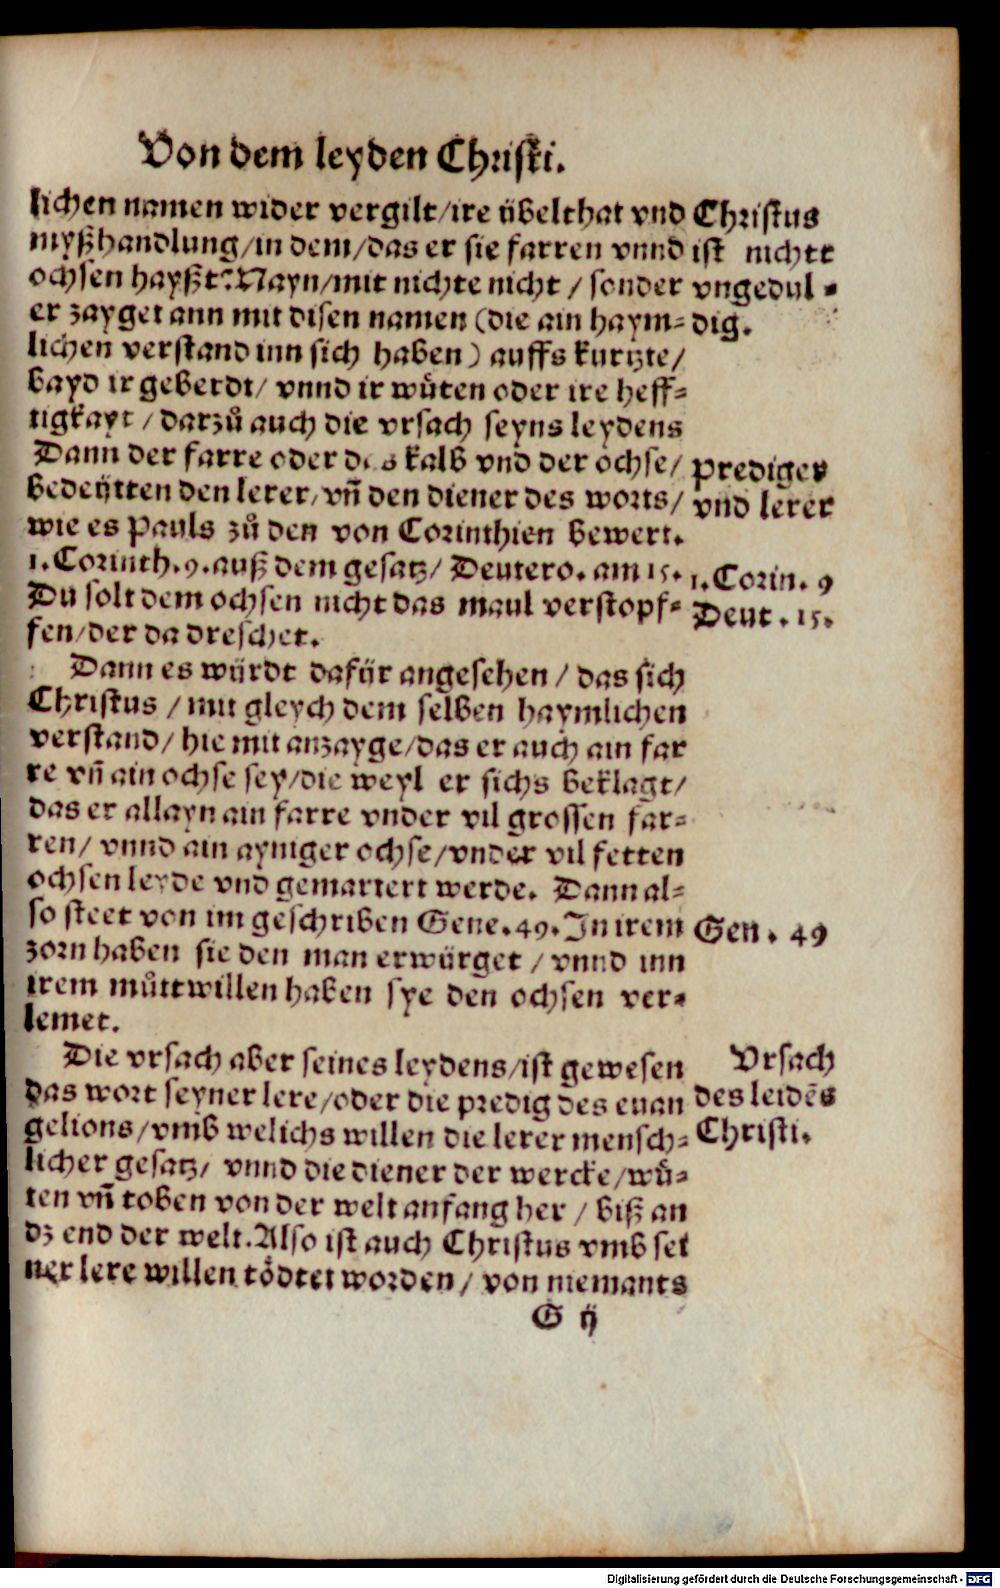 Von dem leyden Christi.
lichen namen wider vergilt/ire übelthat vnd
myßhandlung/in dem/das er sie farren vnnd
ochsen hayßt? Nayn/mit nichte nicht / sonder
er zayget ann mit disen namen (die ain haym=
lichen verstand inn sich haben) auffs kurtzte/
bayd ir geberdt/ vnnd ir wůten oder ire heff=
tigkayt / darzů auch die vrsach seyns leydens
Dann der farre oder das kalb vnd der ochse/
bedeütten den lerer/vñ den diener des worts/
wie es Pauls zů den von Corinthien bewert.
1. Corinth. 9. auß dem gesatz/ Deutero. am 15.
Du solt dem ochsen nicht das maul verstopf=
fen/der da dreschet.
Dann es würdt dafür angesehen / das sich
Christus / mit gleych dem selben haymlichen
verstand/ hie mit anzayge/das er auch ain far
re vñ ain ochse sey/die weyl er sichs beklagt/
das er allayn ain farre vnder vil grossen far=
ren/ vnnd ain ayniger ochse/vnder vil fetten
ochsen leyde vnd gemartert werde. Dann al=
so steet von im geschriben Gene. 49. In irem
zorn haben sie den man erwürget / vnnd inn
irem můttwillen haben sye den ochsen ver=
lemet.
Die vrsach aber seines leydens/ist gewesen
das wort seyner lere/oder die predig des euan
gelions/vmb welichs willen die lerer mensch=
licher gesatz/ vnnd die diener der wercke/wů=
ten vñ toben von der welt anfang her / biß an
dz end der welt. Also ist auch Christus vmb sei
ner lere willen tödtet worden/ von niemants
G ij
Christus
ist nichtt
vngedul=
dig.
Prediger
vnd lerer
1. Corin. 9
Deut. 15.
Gen. 49
Vrsach
des leidēs
Christi.
Digitalisierung gefördert durch die Deutsche Forschungsgemeinschaft - DFG